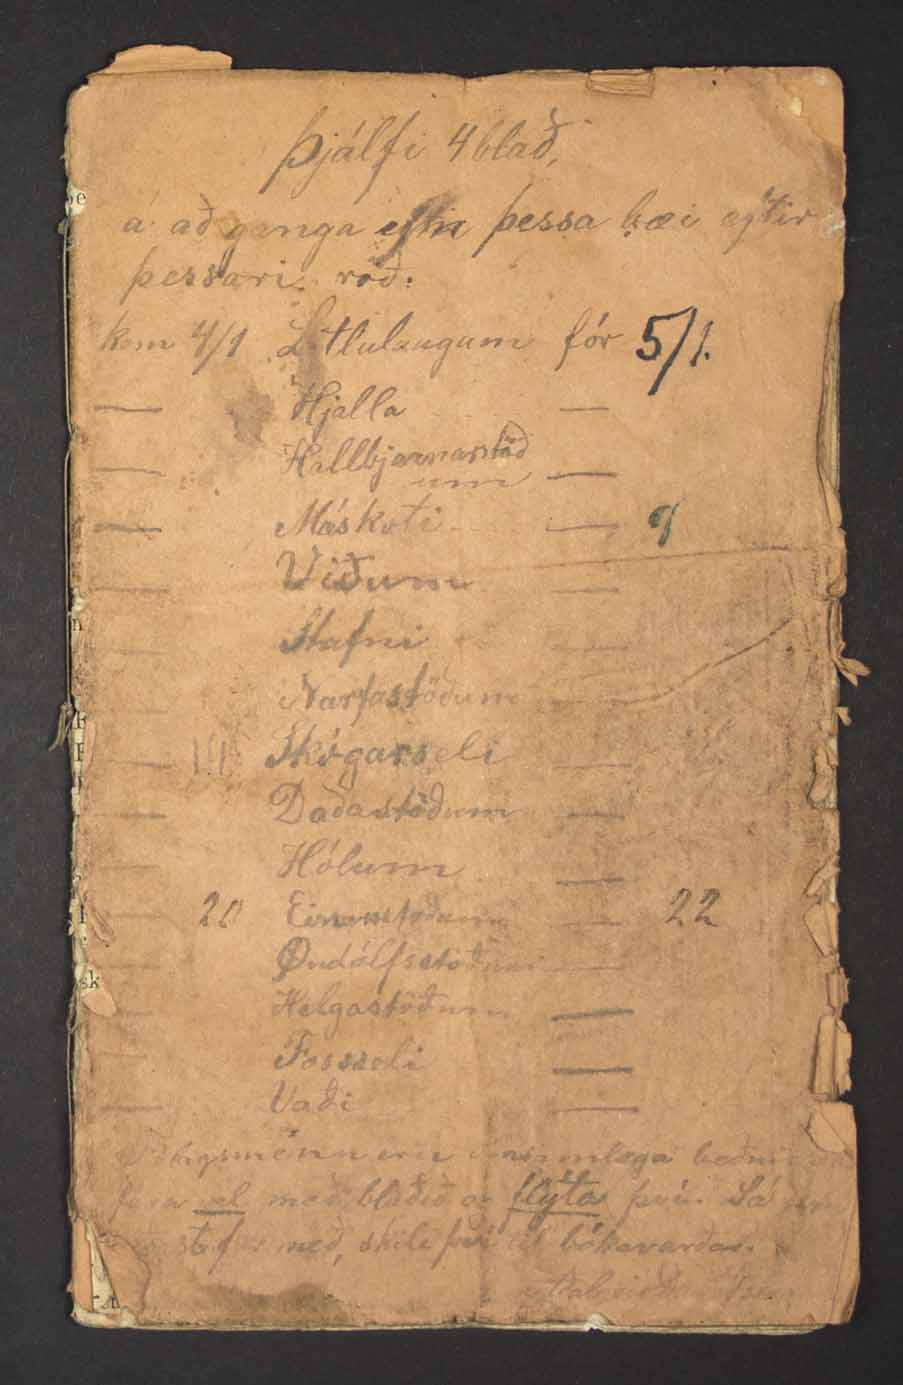 Þjálfi 4 blað,
á að ganga eftir þessa bæi eftir
þessari röð:
kom 4/1 Litlulaugum fór 5/1.
— Hjalla —
— Hallbjarnarstöð
um —
— Máskoti — 9
— Víðum —
— Stafni —
— Narfastöðum —
— 11 Skógarseli —
— Daðastöðum —
— Hólum —
— 20 Einarsstöðum — 22
— Öndólfsstöðum —
— Helgastöðum —
— Fossseli —
— Vaði —
eru innilega beðnir
fara vel með blaðið og flýta því. Sá
með, skili því til bókavarðar.